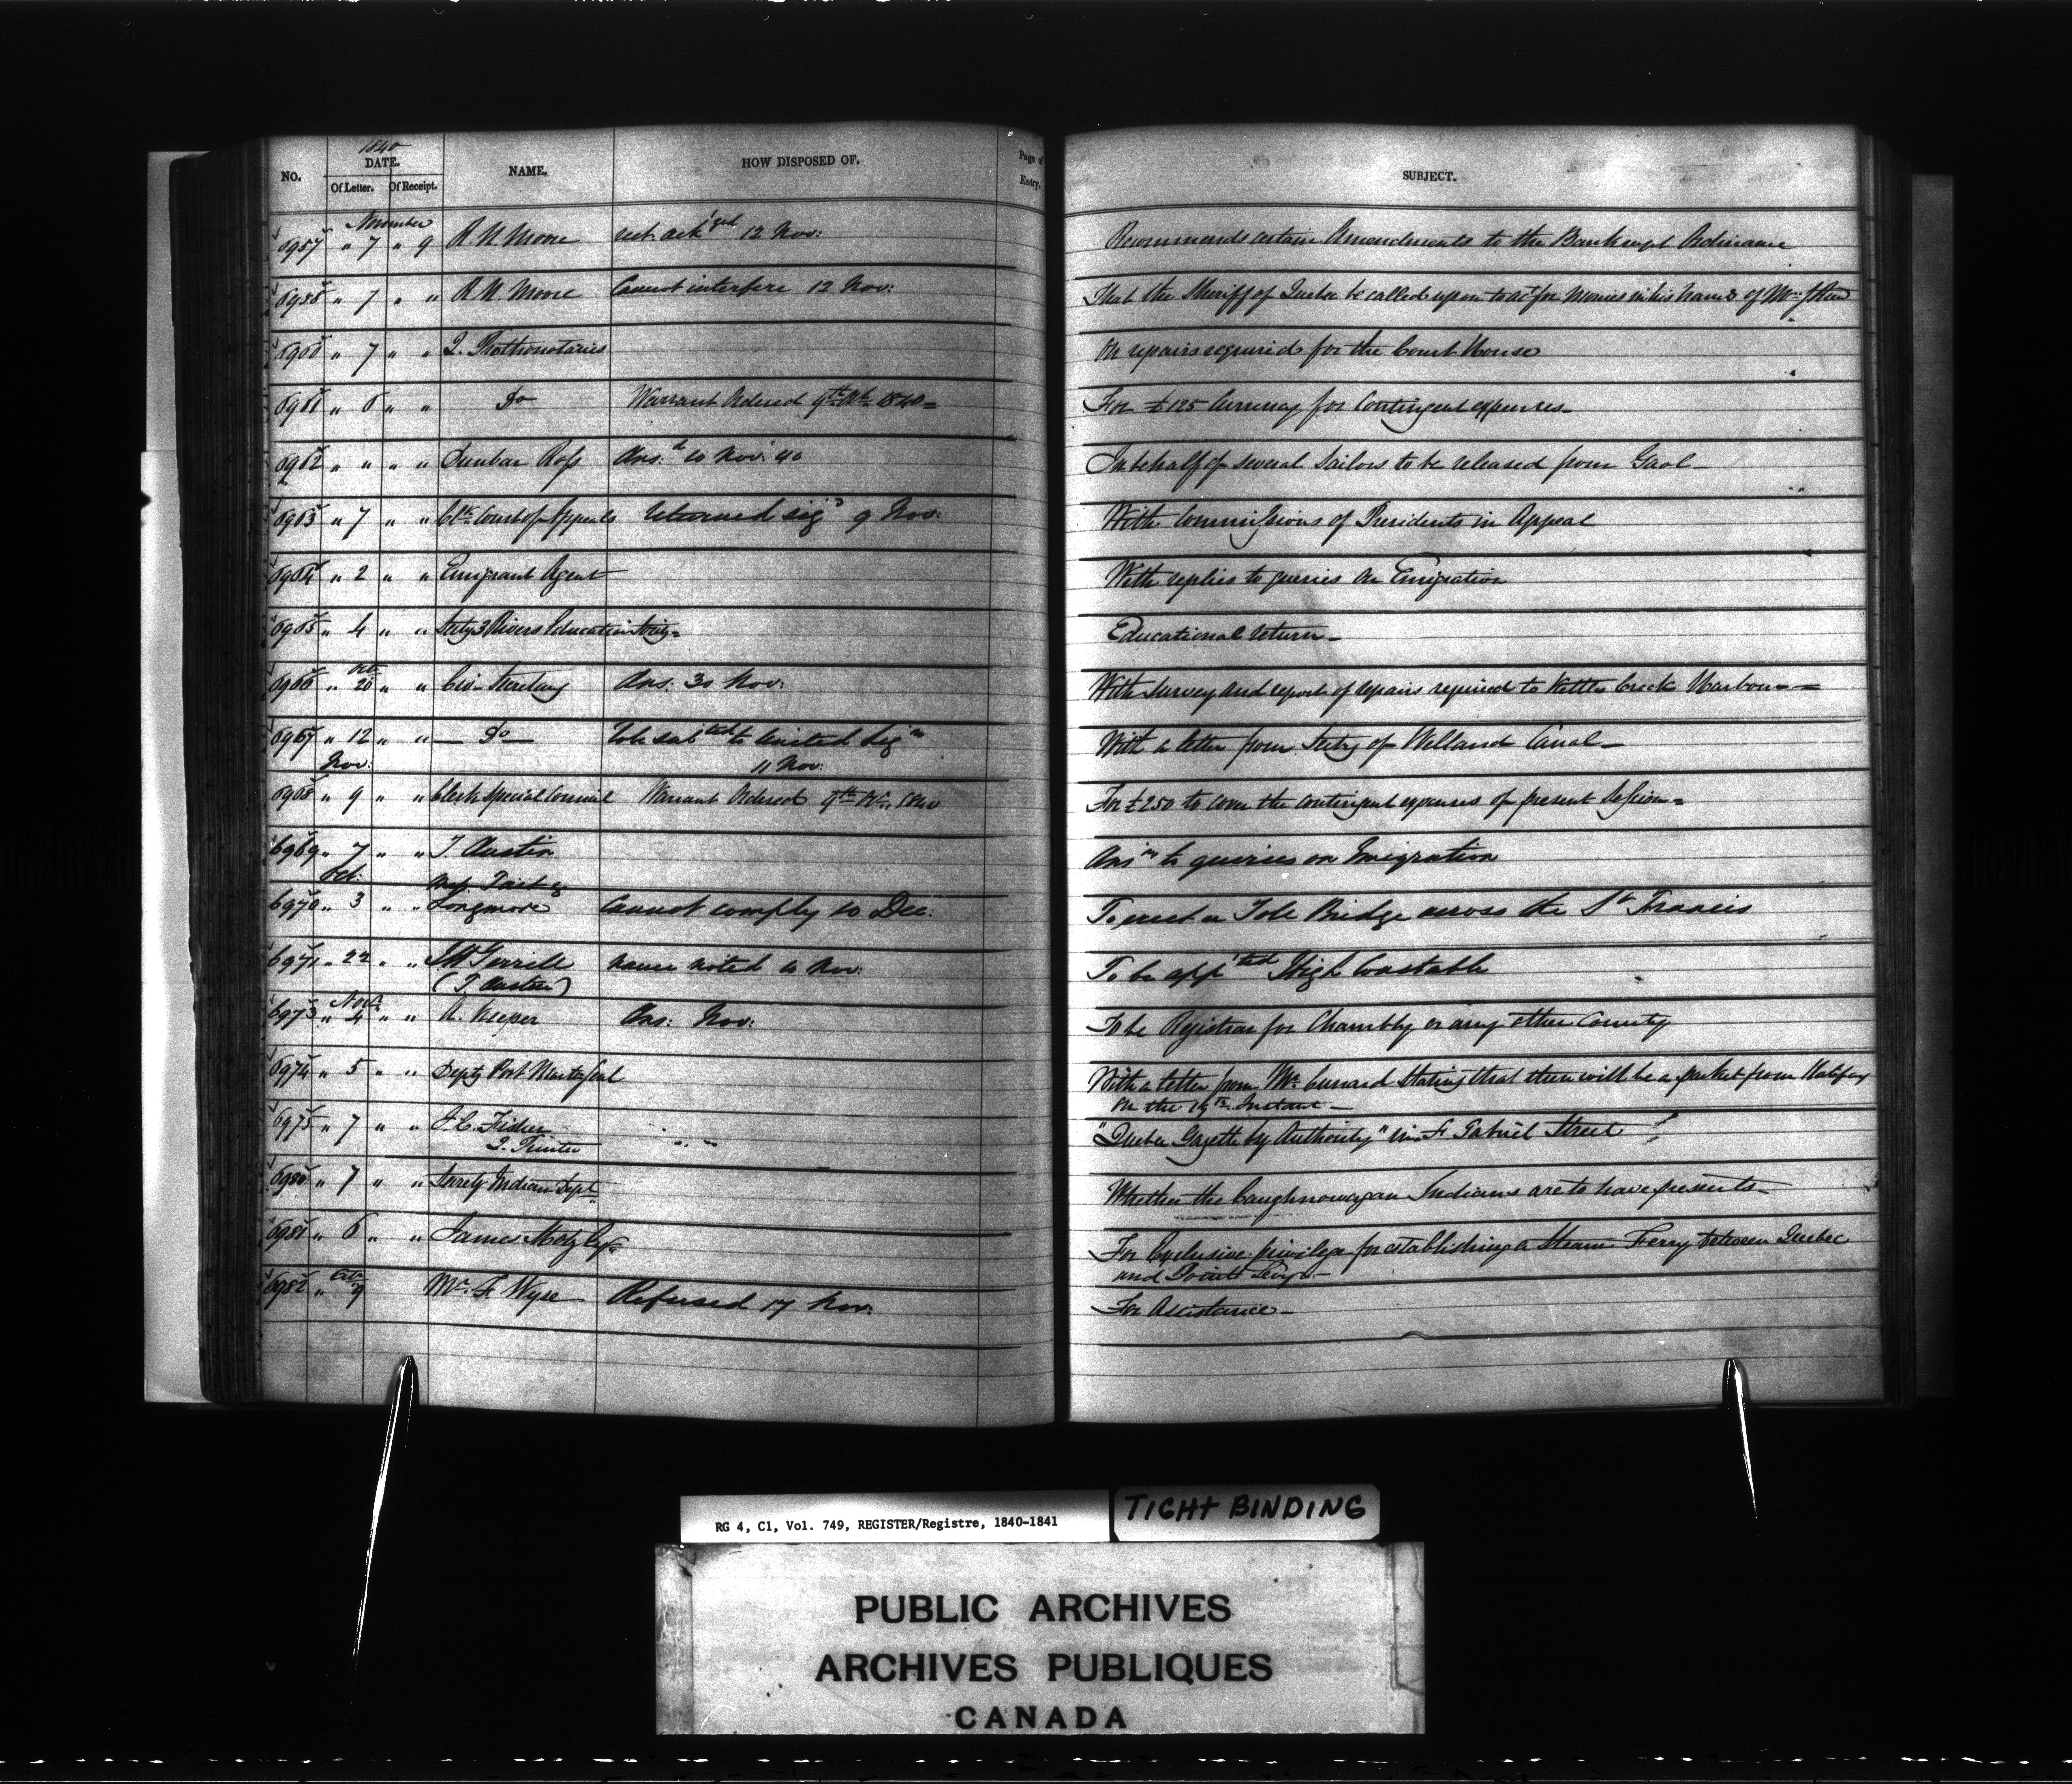 1840
NO. DATE. NAME. HOW DISPOSED OF. Page of Entry. SUBJECT.
Of Letter. Of Receipt.
November
6957 " 7 " 9 R. N. Moore rect. ack'ged 12 Nov: Recommends certain Amendments to the Bankrupt Ordinance
6958 " 7 " " R. N. Moore Cannot interfere 12 Nov: That the Sheriff of Quebec be called upon to act for Monies in his hands of
6960 " 7 " " Q. Prothonotaries On repairs required for the Court House
6961 " 6 " " Do Warrant Ordered 9th Nov. 1840 = For £125 Currency for Contingent expenses _
6962 " " " " Dunbar Ross Ans:d 10 Nov: 40 In behalf of several Sailors to be released from Gaol _
6963 " 7 " " Clk. Court of Appeals Returned sig'd 9 Nov: With Commissions of Presidents in Appeal
6964 " 2 " " Emigrant Agent With replies to queries on Emigration
6965 " 4 " " Secty 3 Rivers Education Socy = Educational return _
Octr
6966 " 20 " " Civ. Secretary Ans: 30 Nov: With Survey and report of repairs required to Kettle Creek Harbour =
6967 " 12 " " — Do — To be sub'ted to United Leg're With a letter from Secty of Welland Canal _
Nov: 11 Nov:
6968 " 9 " " Clerk Special Council Warrant Ordered 9th Nov. 1840 For £250 to cover the contingent expenses of present Session =
6969 " 7 " " T. Austin Ans'rs to queries on Emigration
Oct: Mess. Tait &
6970 " 3 " " Longmore Cannot comply 10 Dec: To erect a Tole Bridge across the St Francis
6971 " 22 " " Terrill name noted 10 Nov: To be app'ted High Constable
(T. Austin)
Novr
6973 " 4 " " A. Kieper Ans: Nov: To be Registrar for Chambly or any other County
6974 " 5 " " Depty Post Master Genl With a letter from Mr. Cunard Stating that there will be a packet from Halifax
on the Instant _
6975 " 7 " " J. C. Fisher "Quebec Gazette by Authority" in St Gabriel Street
Q. Printer
6980 " 7 " " Secrety Indian Dept Whether the Caughnowagan Indians are to have presents _
6981 " 6 " " James Motz Esqr For Exclusive privilege for establishing a Steam Ferry between Quebec
and Pointe Levy _
Octr
6982 " 9 Mr. F. Wyse Refused 17 Nov: For Assistance _
RG 4, C1, Vol. 749, REGISTER/Registre, 1840-1841
TIGHT BINDING
PUBLIC ARCHIVES
ARCHIVES PUBLIQUES
CANADA